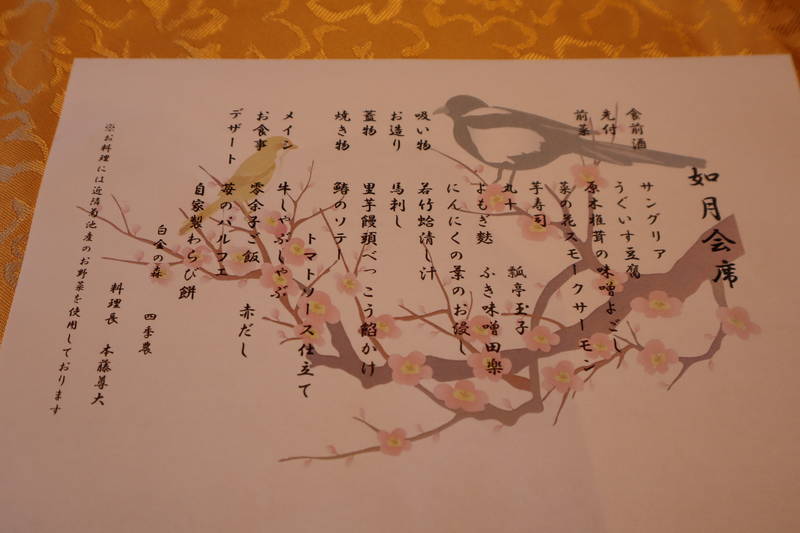 如月会席
食前酒　サングリア
先付　うぐいす豆腐
前菜　原木椎茸の味噌よごし
菜の花スモークサーモン
芋寿司
丸十　瓢亭玉子
よもぎ麩　ふき味噌田楽
にんにくの葉のお浸し
吸い物　若竹蛤清し汁
お造り　馬刺し
蓋物　里芋饅頭べっこう餡かけ
焼き物　鰆のソテー
トマトソース仕立て
メイン　牛しゃぶしゃぶ
お食事　零余子ご飯　赤だし
デザート　苺のパルフェ
自家製わらび餅
白金の森　四季農
料理長　本藤尊大
※お料理には近隣菊池産のお野菜を使用しております